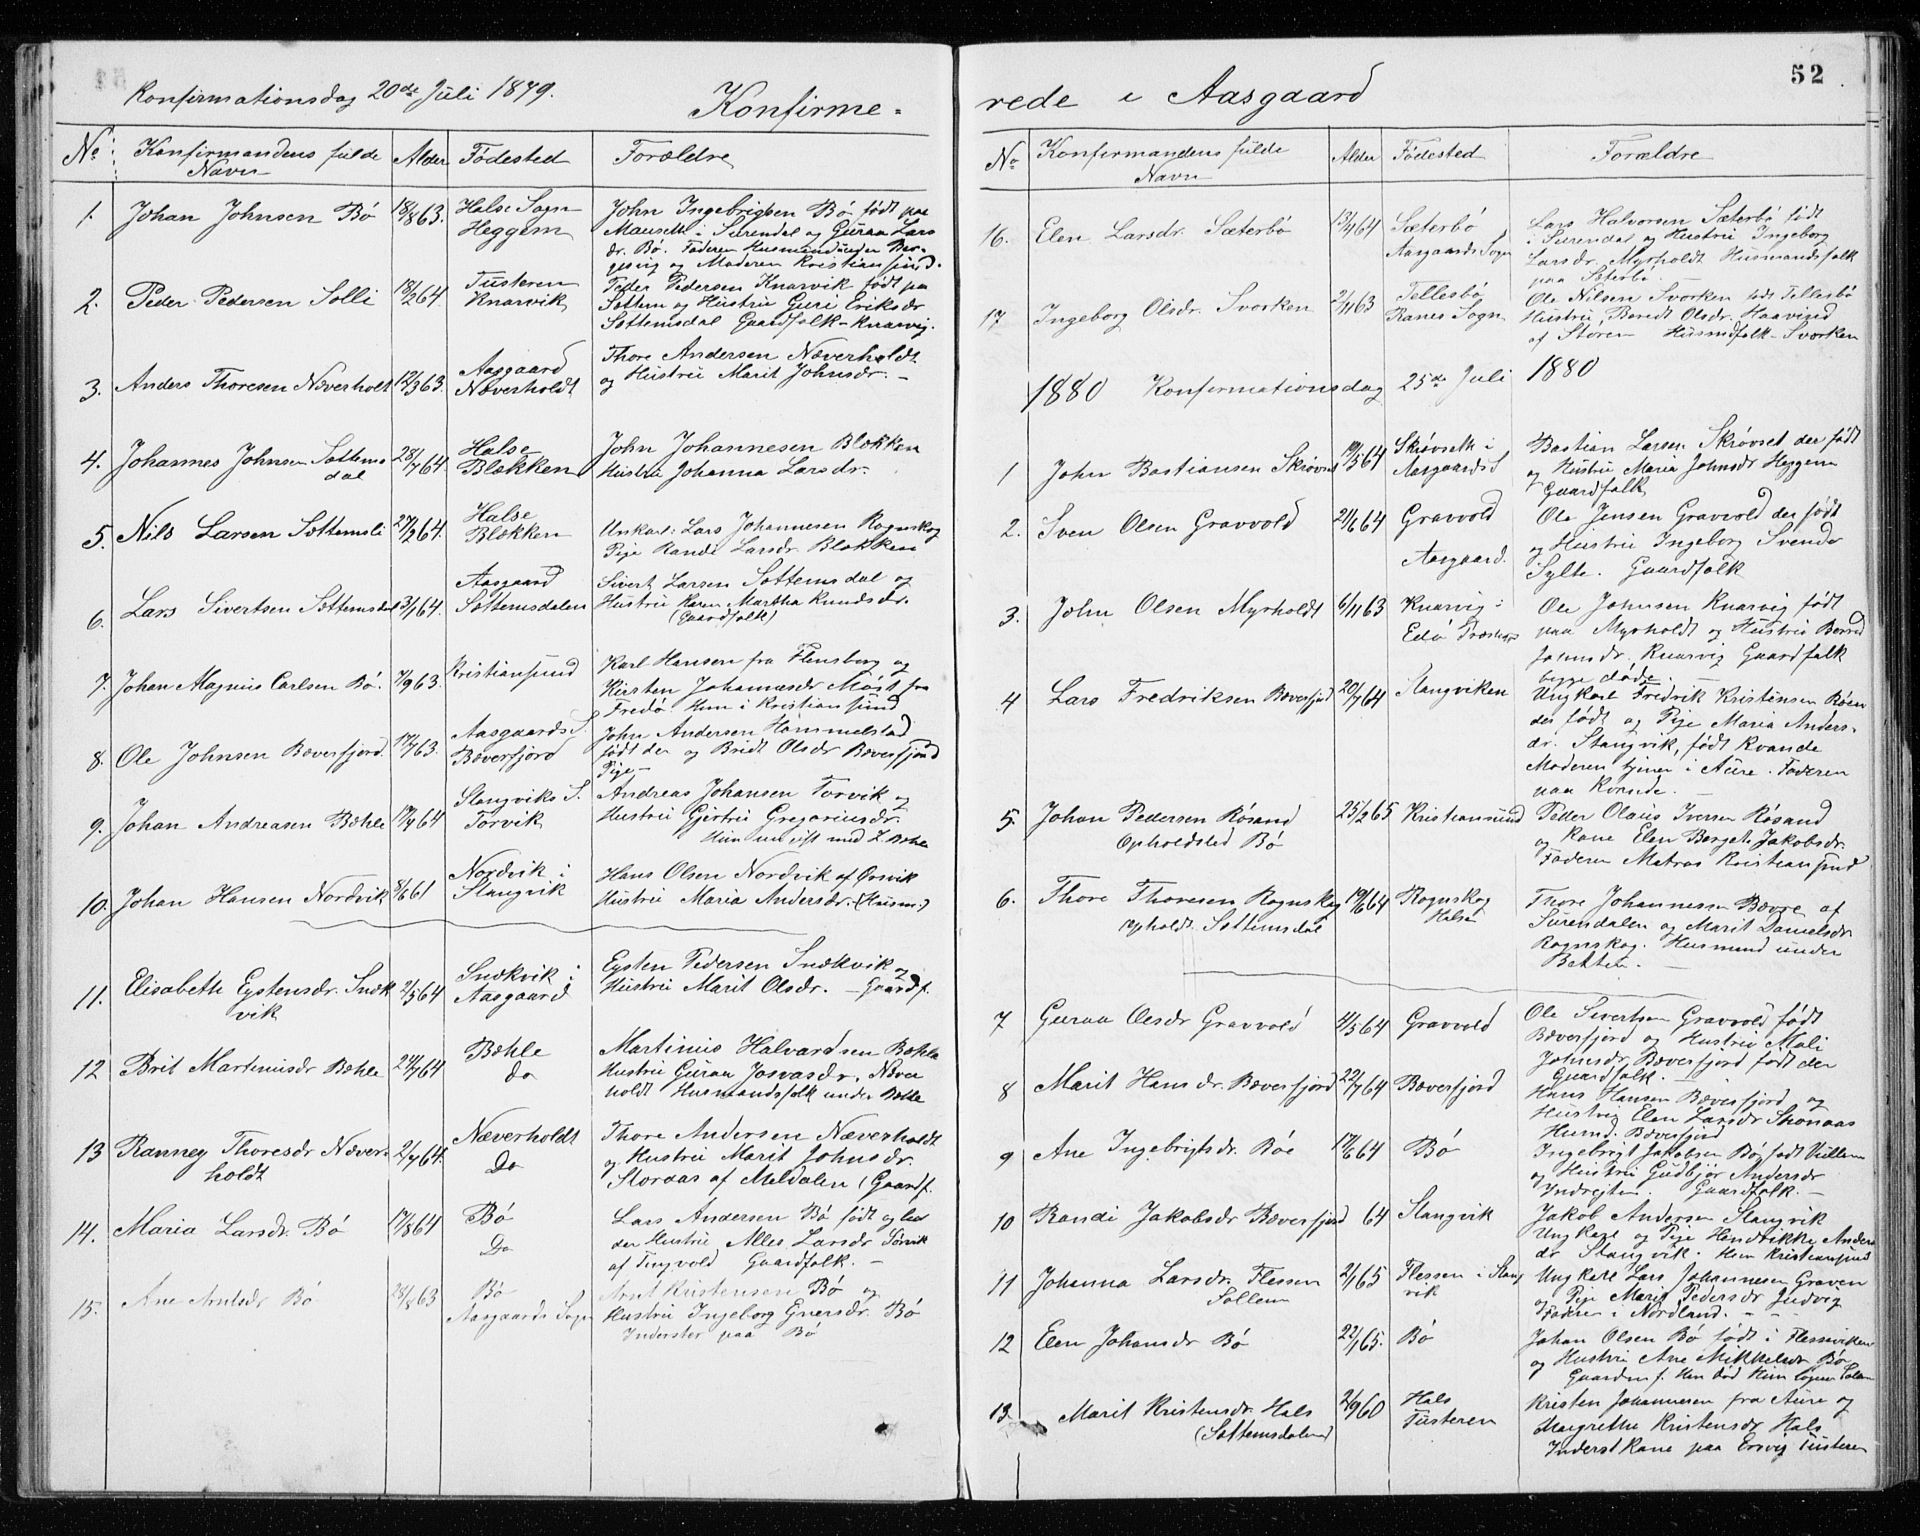 Konfirmationsdag 20de Juli 1879.
Konfirme=
No Konfirmandens fulde Navn Alder Fødested Forældre
1. Johan Johnsen Bø 18/8 63. Halse Sogn Heggem John Ingebrigtsen Bø født paa
Mauseth i Surendal og Guraa Lars
dr. Bø. Faderen Husmand under Ber-
gsvig og Moderen Kristiansund.
2. Peder Pedersen Solli 18/2 64. Tusteren Knarvik Peder Pedersen Knarvik født paa
Settem og Hustru Guri Eriksdr
Settemsdal Gaardfolk - Knarvig.
3. Anders Thoresen Næverholt 12/3 63. Aasgaard Næverholdt Thore Andersen Næverholdt
og Hustru Marit Johnsdr. -
4. Johannes Johnsen Settems
dal 28/7 64. Halse Blekken John Johannesen Blekken
Hustru Johanna Larsdr.
5. Nils Larsen Settemsli 27/2 64. Halse Blekken Unkarl: Lars Johannesen Rognskog
Pige Randi Larsdr. Blekken
6. Lars Sivertsen Settemsdal 3/1 64. Aasgaard Settemsdalen Sivert Larsen Settemsdal og
Hustru Karen Martha Knudsdr.
(Gaardfolk)
7. Johan Magnus Carlsen Bø. 9 63. Kristiansund Karl Hansen fra Flensborg og
Kirsten Johannesdr Møst fra
Fredø Hun i Kristiansund
8. Ole Johnsen Bæverfjord. 7 63. Aasgaards S. Bæverfjord John Andersen Hommelstad
født der og Bridt Olsdr Bæverfjord
Pige -
9. Johan Andreasen Bæhle 64 Stangviks S. Torvik Andreas Johansen Torvik og
Hustru Gjertru Gregoriusdr.
Hun nu gift med L Bæhle
10. Johan Hansen Nordvik 8/6 61 Nordvik i Stangvik Hans Olsen Nordvik af Ørsvik
Hustru Maria Andersdr. (Husm.)
11. Elisabeth Eystensdr. Snek
vik 2/5 64 Snekvik i Aasgaard Eysten Pedersen Snekvik og
Hustru Marit Olsdr. - Gaardf.
12 Brit Martinusdr Bæhle 24/7 64 Bæhle Do Martinus Halvardsen Bæhle
Hustru Guraa Josvasdr. Næver
holdt Husmandsfolk under Bæhle
13 Ranney Thoresdr Næver-
holdt 2/7 64. Næverholdt Do Thore Andersen Næverholdt
og Hustru Marit Johnsdr.
Stordas af Meldalen (Gaardf.
14. Maria Larsdr Bø 17/8 64 Bø Do Lars Andersen Bø født og
der Hustru Alles Larsdr Torvik
af Tingvold Gaardfolk. -
15. Ane Arntsdr Bø 28/8 63 Bø Aasgaards Sogn Arnt Kristensen Bø og
Hustru Ingeborg Einersdr. Bø
Inderster paa Bø
52
rede i Aasgaard
No Konfirmandens fulde Navn Alder Fødested Forældre
16. Elen Larsdr. Sæterbø 13/4 64 Sæterbø Aasgaards Sogn Lars Halvorsen Sæterbø født
i Surendal og Hustru Ingeborg
Larsdr. Myrholdt Husmandsfolk
paa Sæterbø. -
17 Ingeborg Olsdr. Svorken 2/11 63 Tellesbø Ranes Sogn Ole Nilsen Svorken født Tellesbø
Hustru Beredt Olsdr. Haavind
af Støren Husmdfolk - Svorken
1880 Konfirmationsdag 25de Juli 1880
1 John Bastiansen Skrøvset 19/5 64 Skrøvseth i Aasgaards S Bastian Larsen Skrøvset der født
og Hustru Maria Johnsdr Heggem
Gaardfolk
2. Sven Olsen Gravvold 21/6 64 Gravvold Aasgaard. Ole Jensen Gravvold der født
og Hustru Ingeborg Svendsdr
Sylte. Gaardfolk
3. John Olsen Myrholdt 6/11 63 Knarvig i Edø Præstegj Ole Johnsen Knarvig født
paa Myrholdt og Hustru Berred
Johnsdr. Knarvig Gaardfolk
begge døde. -
4 Lars Fredriksen Bæverfjord 20/7 64 Stangviken Ungkarl Fredrik Kristensen Røen
der født og Pige Maria Anders-
dr. Stangvik, født Kvande
Moderen tjener i Aure. Faderen
paa Kvande.
5. Johan Pedersen Røsand
Opholdsted Bø 25/2 65 Kristiansund Peder Olaus Iversen Røsand
og Kone Elen Bergete Jakobsdr.
Faderen Matros Kristiansund
6. Thore Thoresen Rognskog
Opholdt. Settemsdal 19/6 64 Rognskog Halse Thore Johannesen Bævre af
Surendalen og Marit Danielsdr
Rognskog. Husmænd under
Bekken. -
7 Guraa Olsdr Gravvold 4/5 64 Gravvold Ole Sivertsen Gravvold født
Bæverfjord og Hustru Mali
Johnsdr Bæverfjord født der
Gaardfolk. -
8 Marit Hansdr. Bæverfjord 22/7 64 Bæverfjord Hans Hansen Bæverfjord og
Hustru Elen Larsdr Skonaas
Husmd. Bæverfjord
9 Ane Ingebrigtsdr. Bøe 17/6 64 Bø Ingebrigt Jakobsen Bø født
og Hustru Gudbjør Andersdr
Gaardfolk. -
10 Randi Jakobsdr Bæverfjord 64 Stangvik Jakob Andersen Stangvik
Ungkarl og Pige Hendrikke Anders
dr Stangvik. Hun Kristiansund
11 Johanna Larsdr. Flessen
Sollem 2/1 65 Flessen i Stang
vik Ungkarl Lars Johannesen Graven
og Pige Marit Pedersdr Judvig
Faderen i Nordland. -
12 Elen Johansdr Bø 22/1 65. Bø Johan Olsen Bø født i Flessviken
og Hustru Ane Mikkelsdr Bø
Gaardm f. Han død Hun
13. Marit Kristensdr. Hals
(Settemsdalen) 2/9 60 Hals Tusteren Kristen Johannesen fra Aure og
Margrethe Kristensdr Hals
Inderst Kone paa Ersvig Tusteren